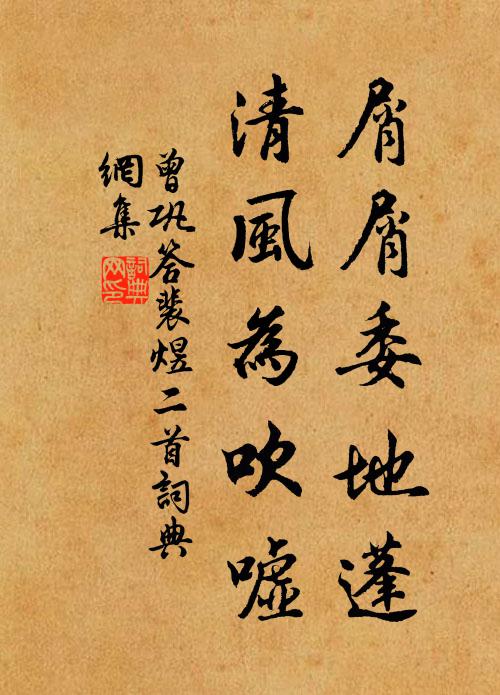 屑屑委地蓬
清風為吹噓
曾巩答裴煜二首詞典
網集
詞典
网印